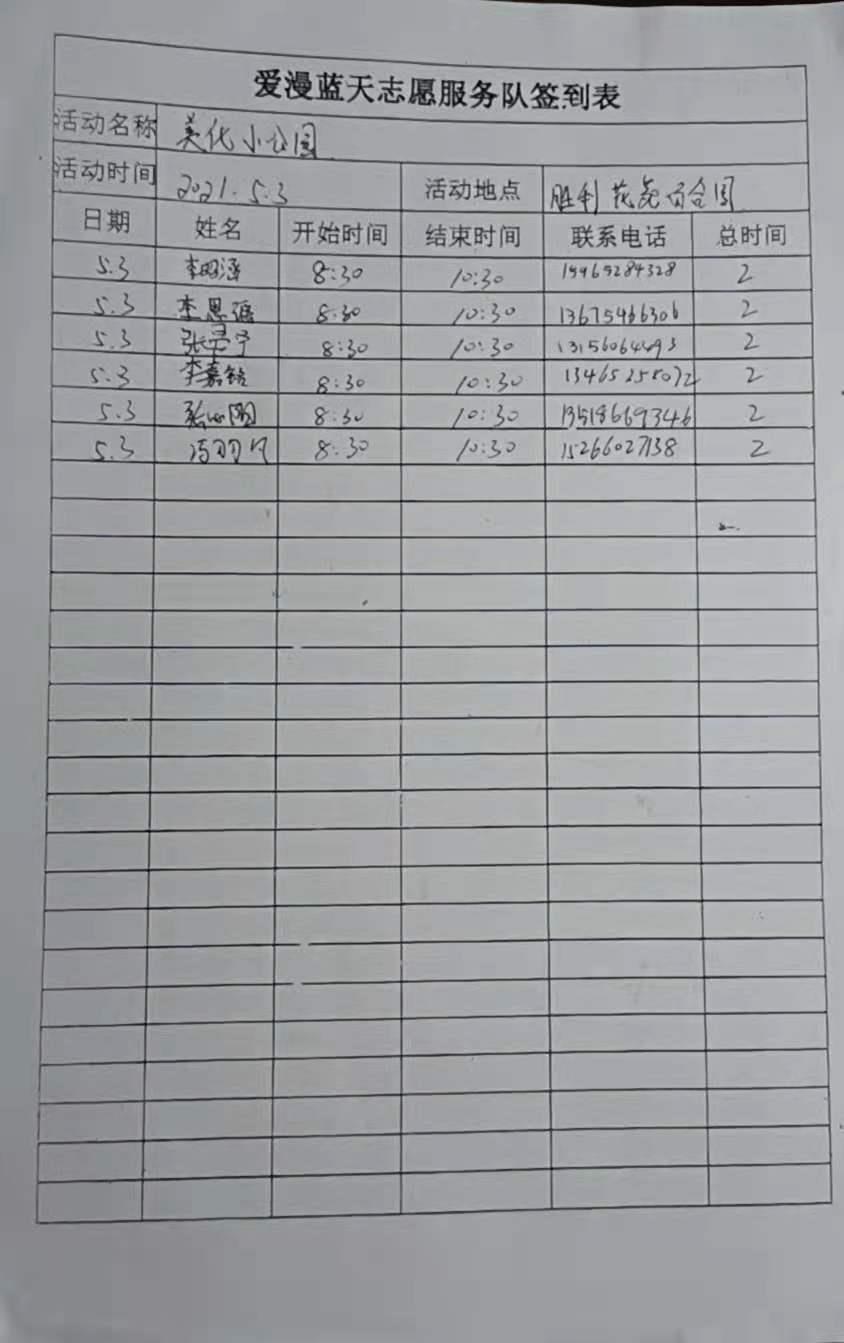 爱漫蓝天志愿服务队签到表
活动名称 美化小公园
活动时间 2021.5.3 活动地点 胜利花苑百合园
日期 姓名 开始时间 结束时间 联系电话 总时间
5.3 8:30 10:30 2
5.3 李思瑶 8:30 10:30 13675466306 2
5.3 8:30 10:30 2
5.3 李嘉铭 8:30 10:30 2
5.3 8:30 10:30 13518669346 2
5.3 冯羽凡 8:30 10:30 15266027138 2